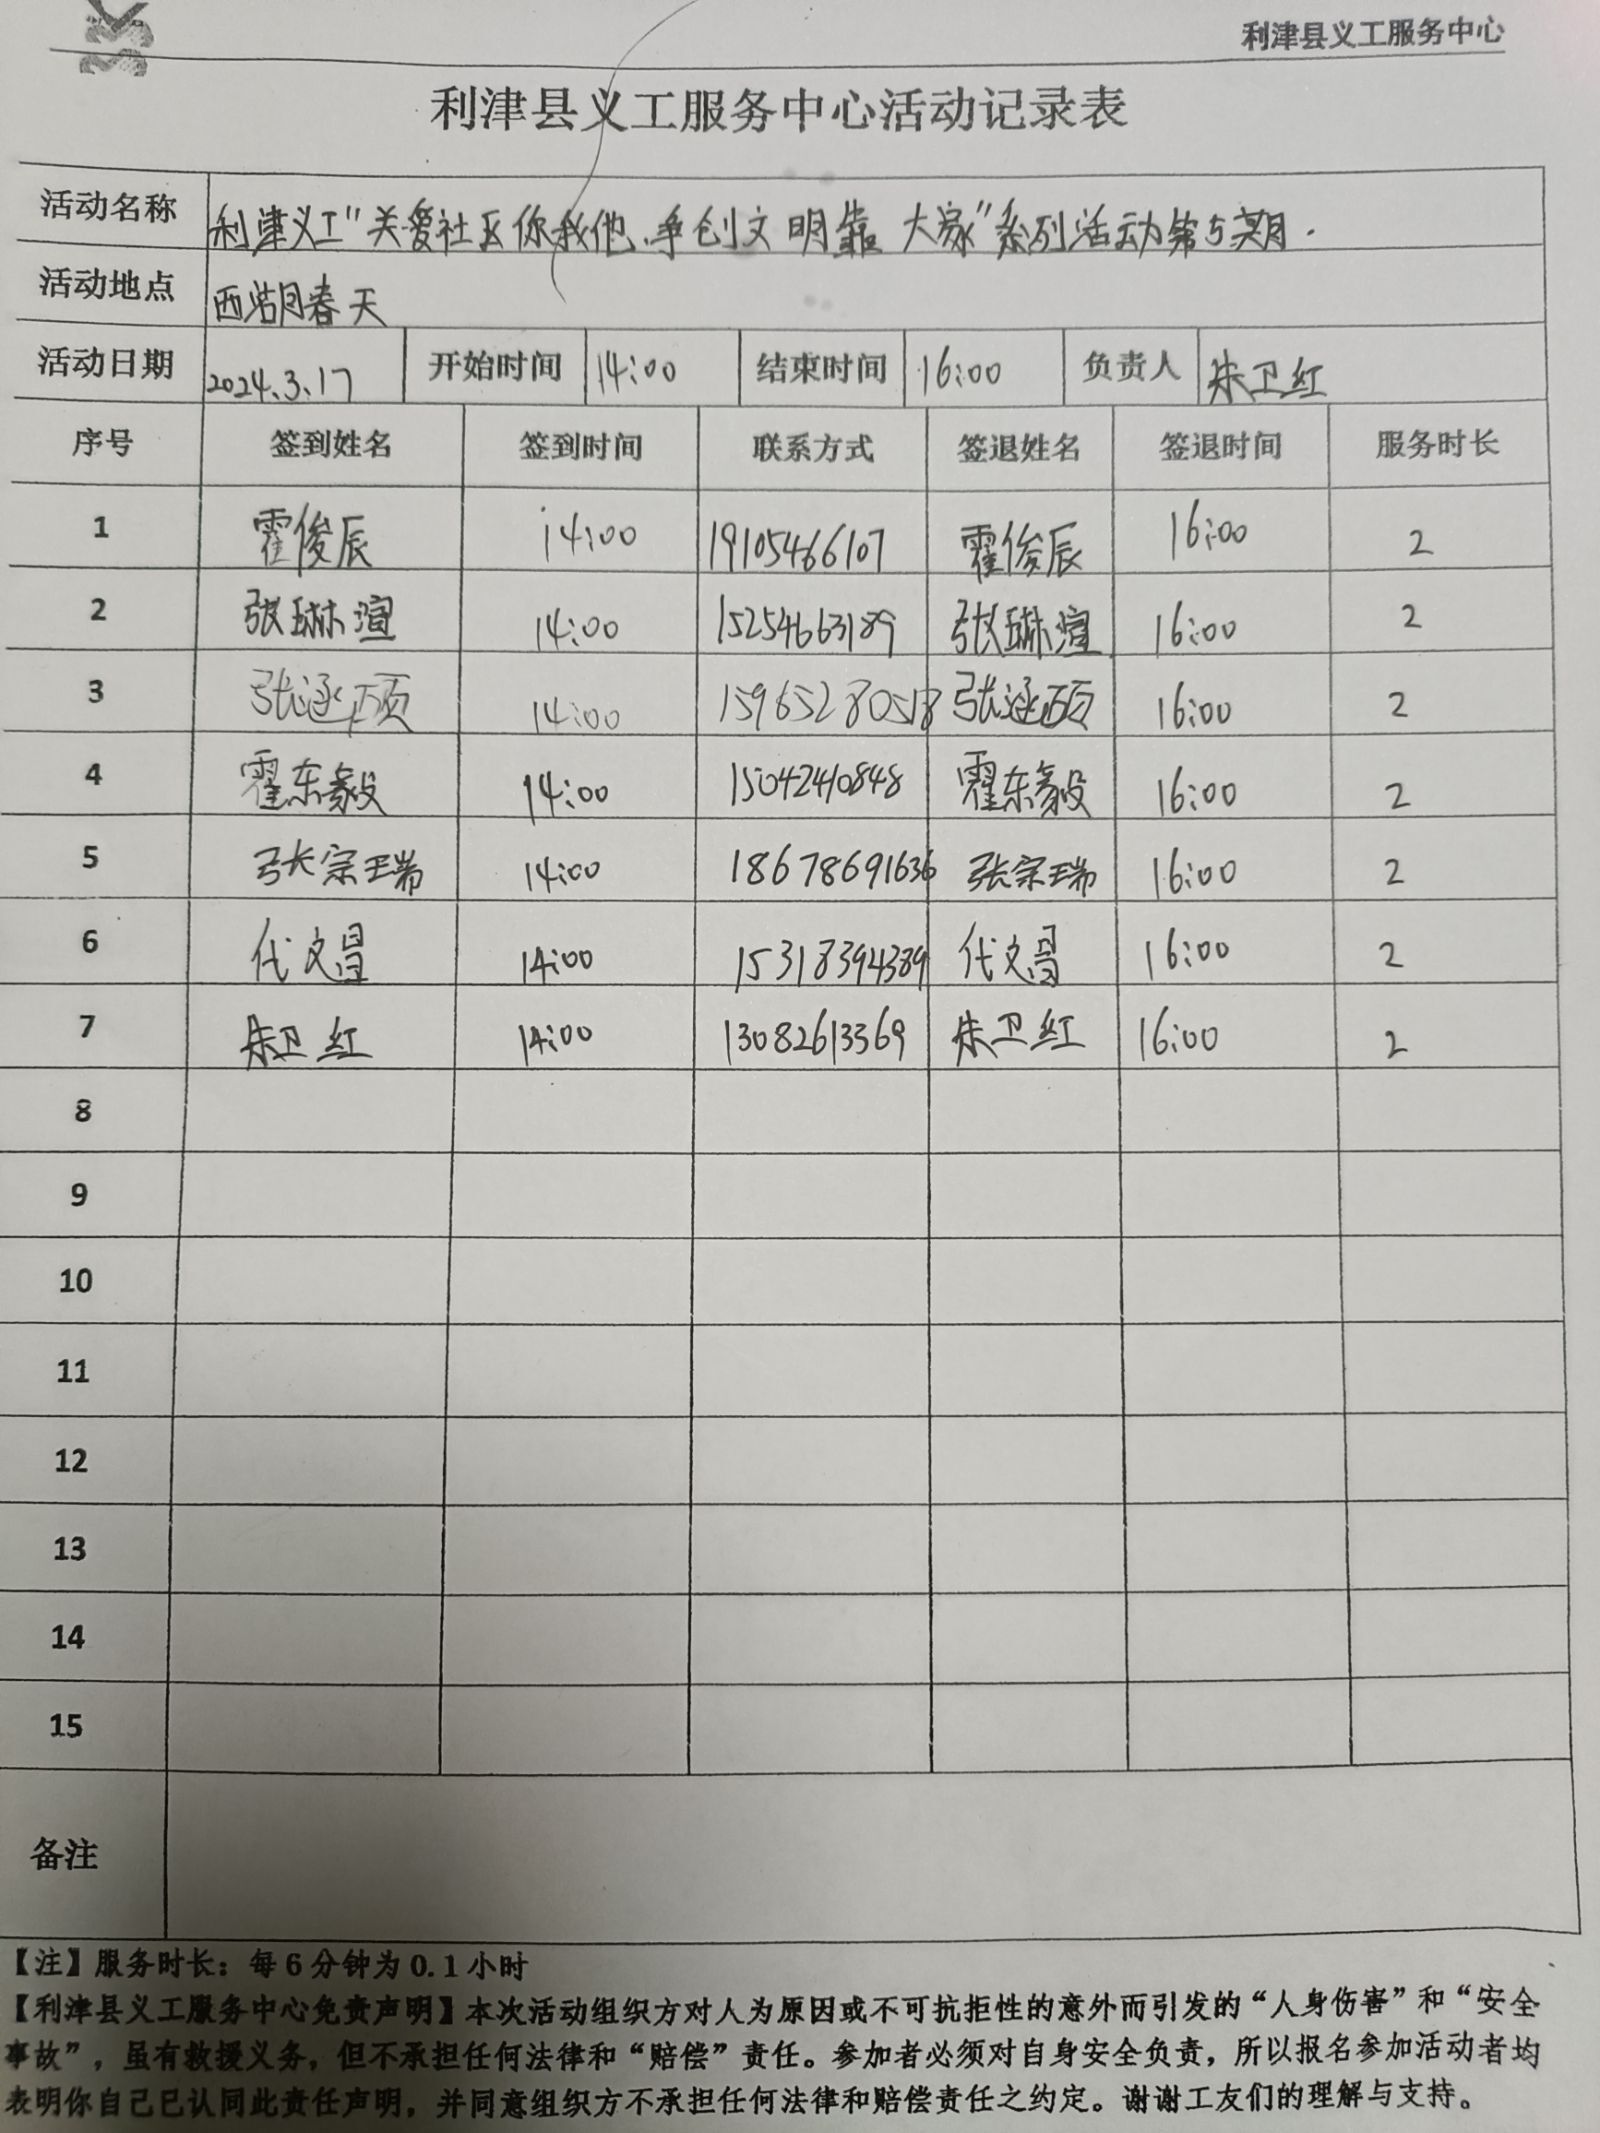 利津县义工服务中心
利津县义工服务中心活动记录表
活动名称 利津义工"关爱社区你我他、争创文明靠大家"系列活动第5期.
活动地点 西湖春天
活动日期 2024.3.17 开始时间 14:00 结束时间 16:00 负责人 朱卫红
序号 签到姓名 签到时间 联系方式 签退姓名 签退时间 服务时长
1 霍俊辰 14:00 19105466107 霍俊辰 16:00 2
2 张琳渲 14:00 15254663189 张琳渲 16:00 2
3 张涵硕 14:00 15965280518 张涵硕 16:00 2
4 霍东毅 14:00 15042410848 霍东毅 16:00 2
5 张宗瑞 14:00 18678691636 张宗瑞 16:00 2
6 代文昌 14:00 15318394389 代文昌 16:00 2
7 朱卫红 14:00 13082613369 朱卫红 16:00 2
8
9
10
11
12
13
14
15
备注
【注】服务时长：每6分钟为0.1小时
【利津县义工服务中心免责声明】本次活动组织方对人为原因或不可抗拒性的意外而引发的“人身伤害”和“安全
事故”，虽有救援义务，但不承担任何法律和“赔偿”责任。参加者必须对自身安全负责，所以报名参加活动者均
表明你自己已认同此责任声明，并同意组织方不承担任何法律和赔偿责任之约定。谢谢工友们的理解与支持。